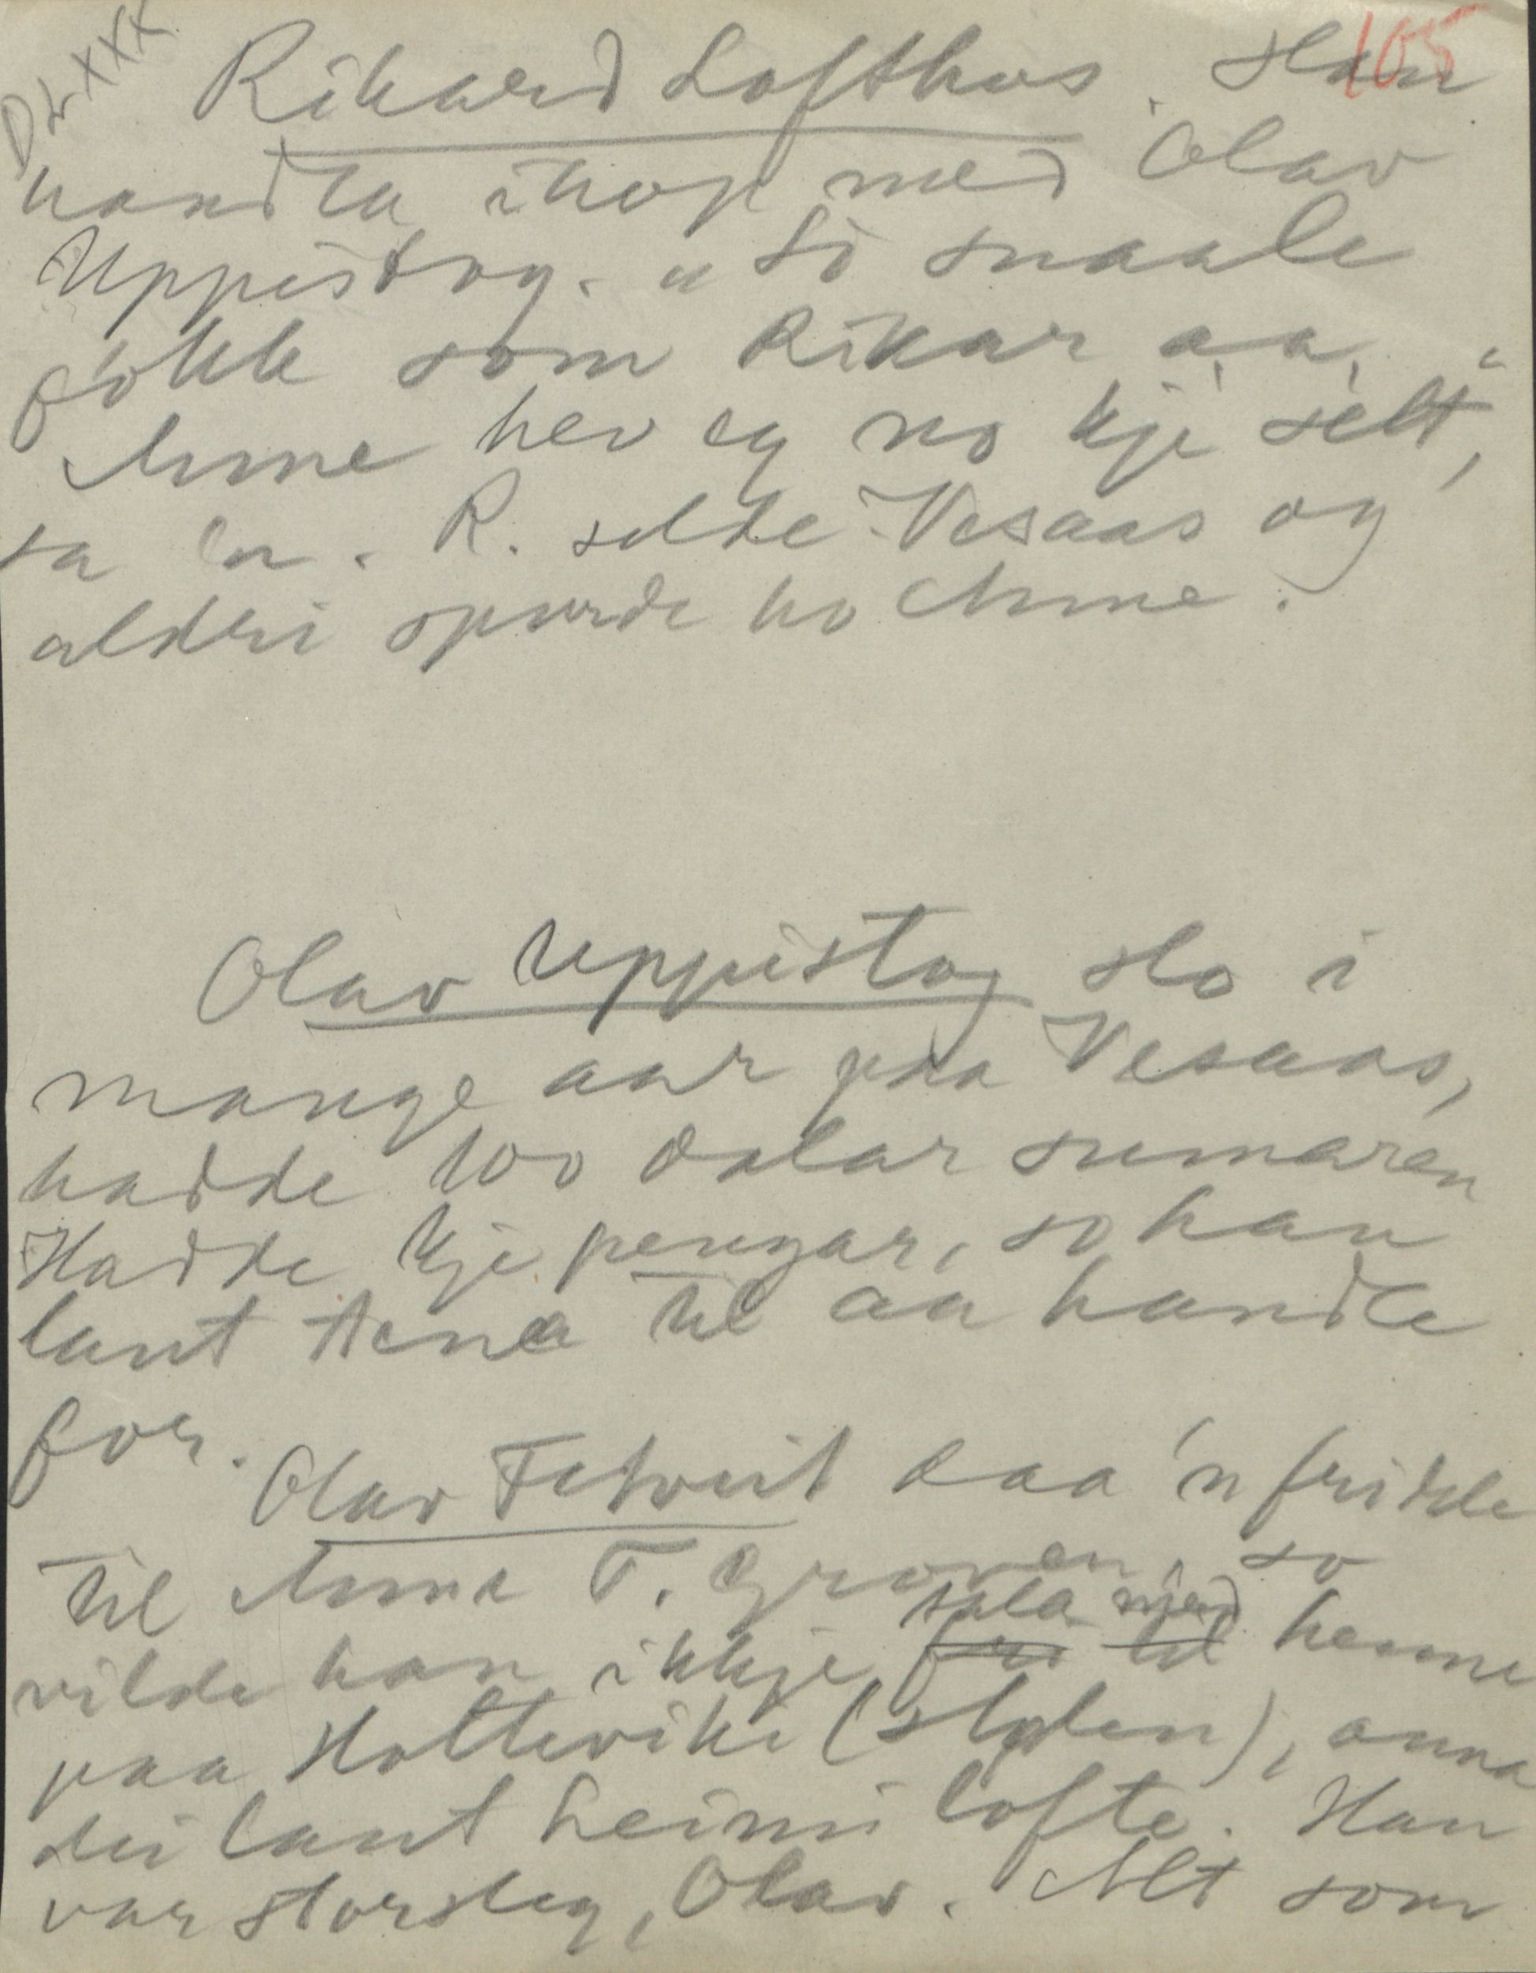 DLXXX. 105
Rikard Lofthus. Han
handla ihop med Olav
Uppistog. "So snaale
fókk som Rikar aa
Anne hev eg no kje sètt",
sa 'en. R. selde Vesaas og
aldri spurde ho Anne.
Olav Uppistog slo i
mange aar paa Vesaas,
hadde 100 dalar sumaren
Hadde kje pengar, so han
laut tena til aa handle
for.
Olav Fetveit daa 'n fridde
til Anne T. Groven, so
tala med
vilde han ikkje fri til henne
paa Holtevika (stylen), anna
dei laut heim i lofte. Han
var storsleg, Olav. Alt som